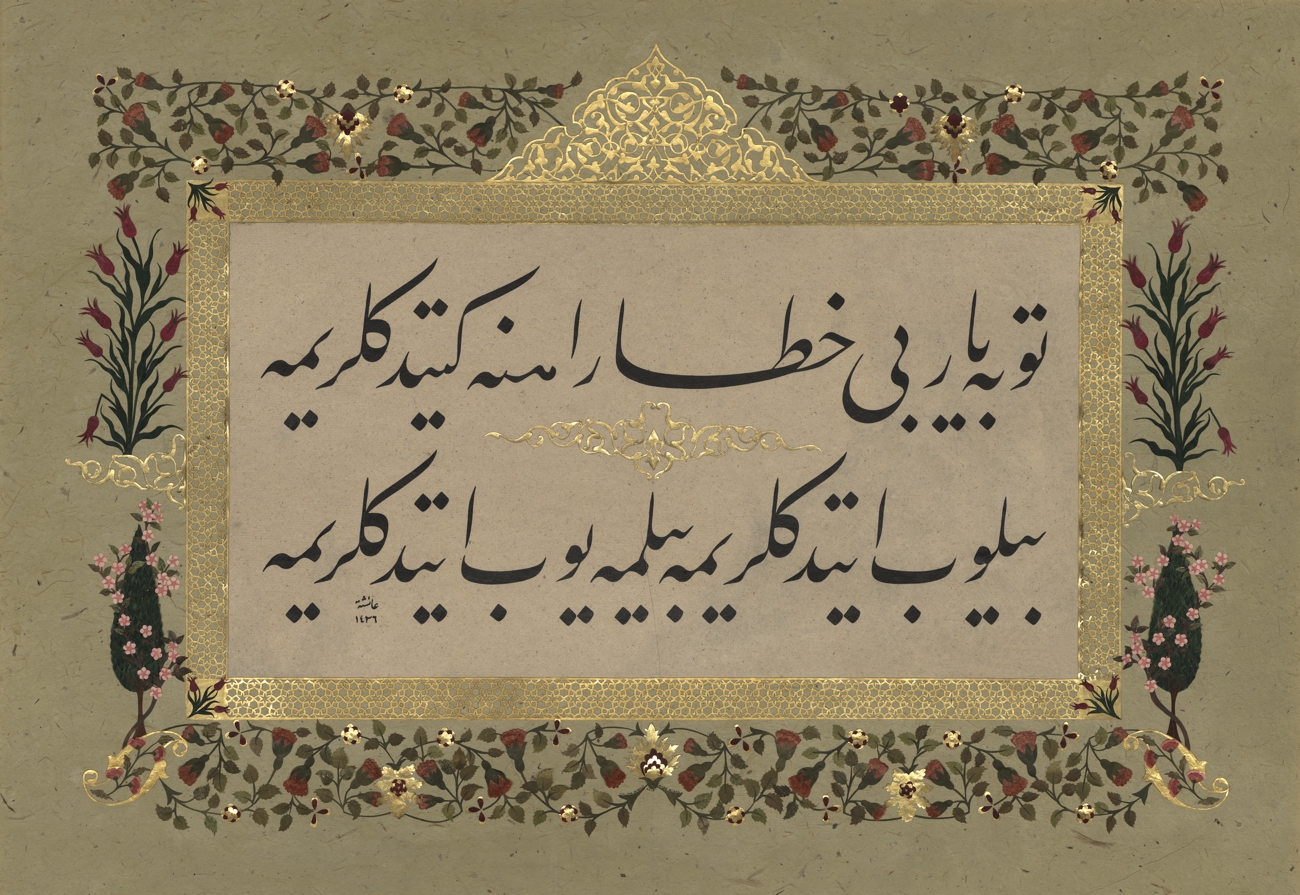 توبه یا ربی خطا راهنه كیتدكلریمه
بیلوب ایتدكلریمه بیلمه یوب ایتدكلریمه
عائشة
١٤٣٦